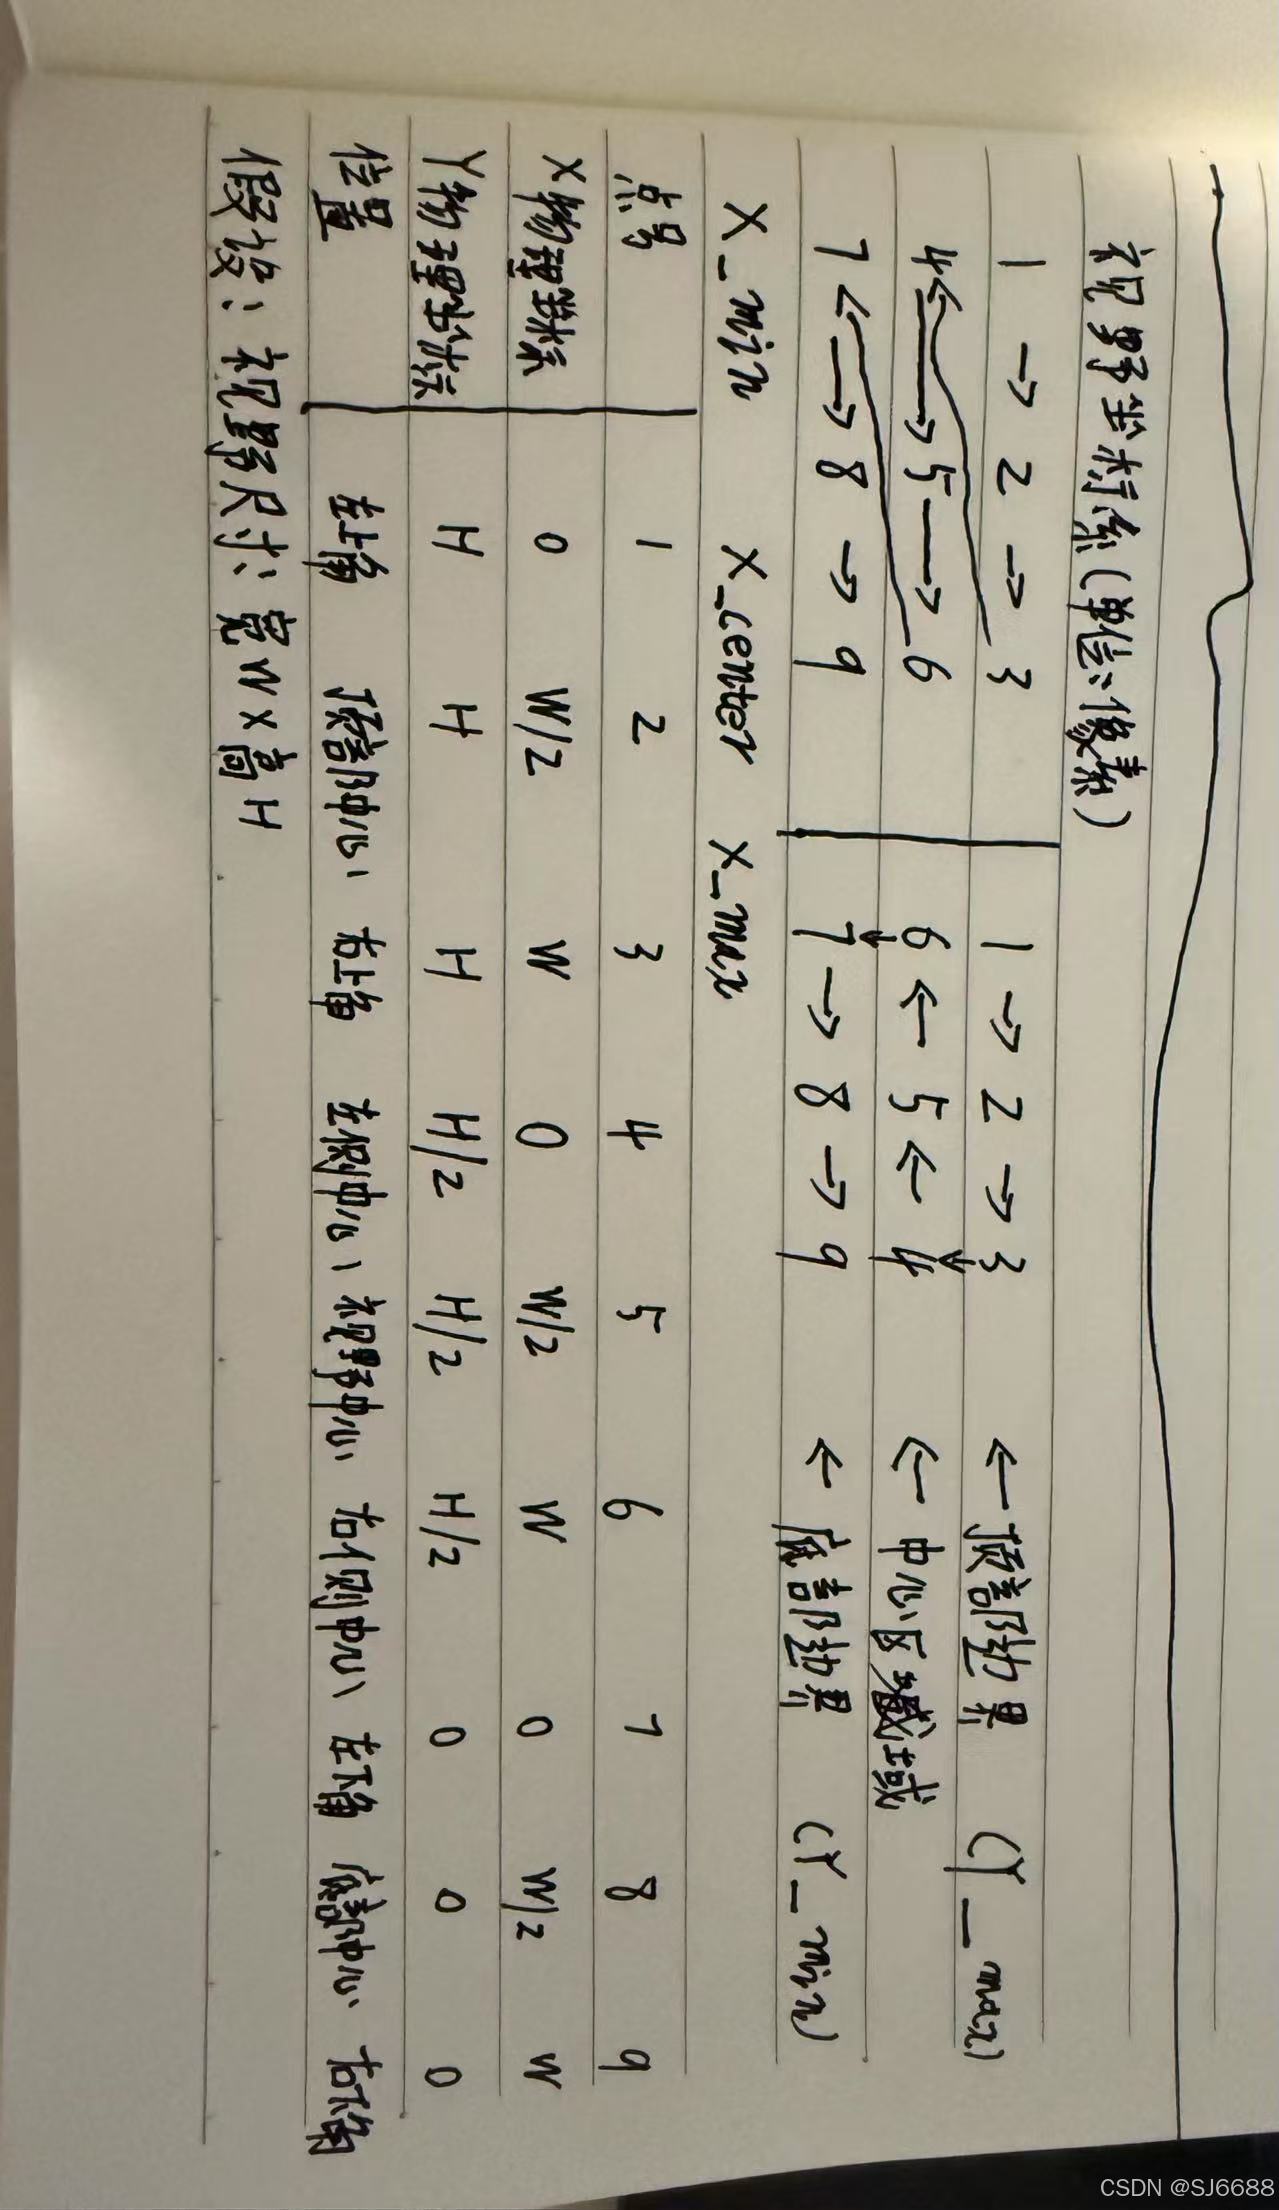 视野坐标系(单位:像素)
1 → 2 → 3 1 → 2 → 3 ← 顶部边界 (Y_max)
4 ← → 5 → 6 6 ← 5 ← 4 ← 中心区域
7 ← → 8 → 9 7 → 8 → 9 ← 底部边界 (Y_min)
X_min X_center X_max
点号 1 2 3 4 5 6 7 8 9
X物理坐标系 0 W/2 W 0 W/2 W 0 W/2 W
Y物理坐标系 H H H H/2 H/2 H/2 0 0 0
位置 左上角 顶部中心 右上角 左侧中心 视野中心 右侧中心 左下角 底部中心 右下角
假设:视野尺寸:宽W×高H
CSDN @SJ6688